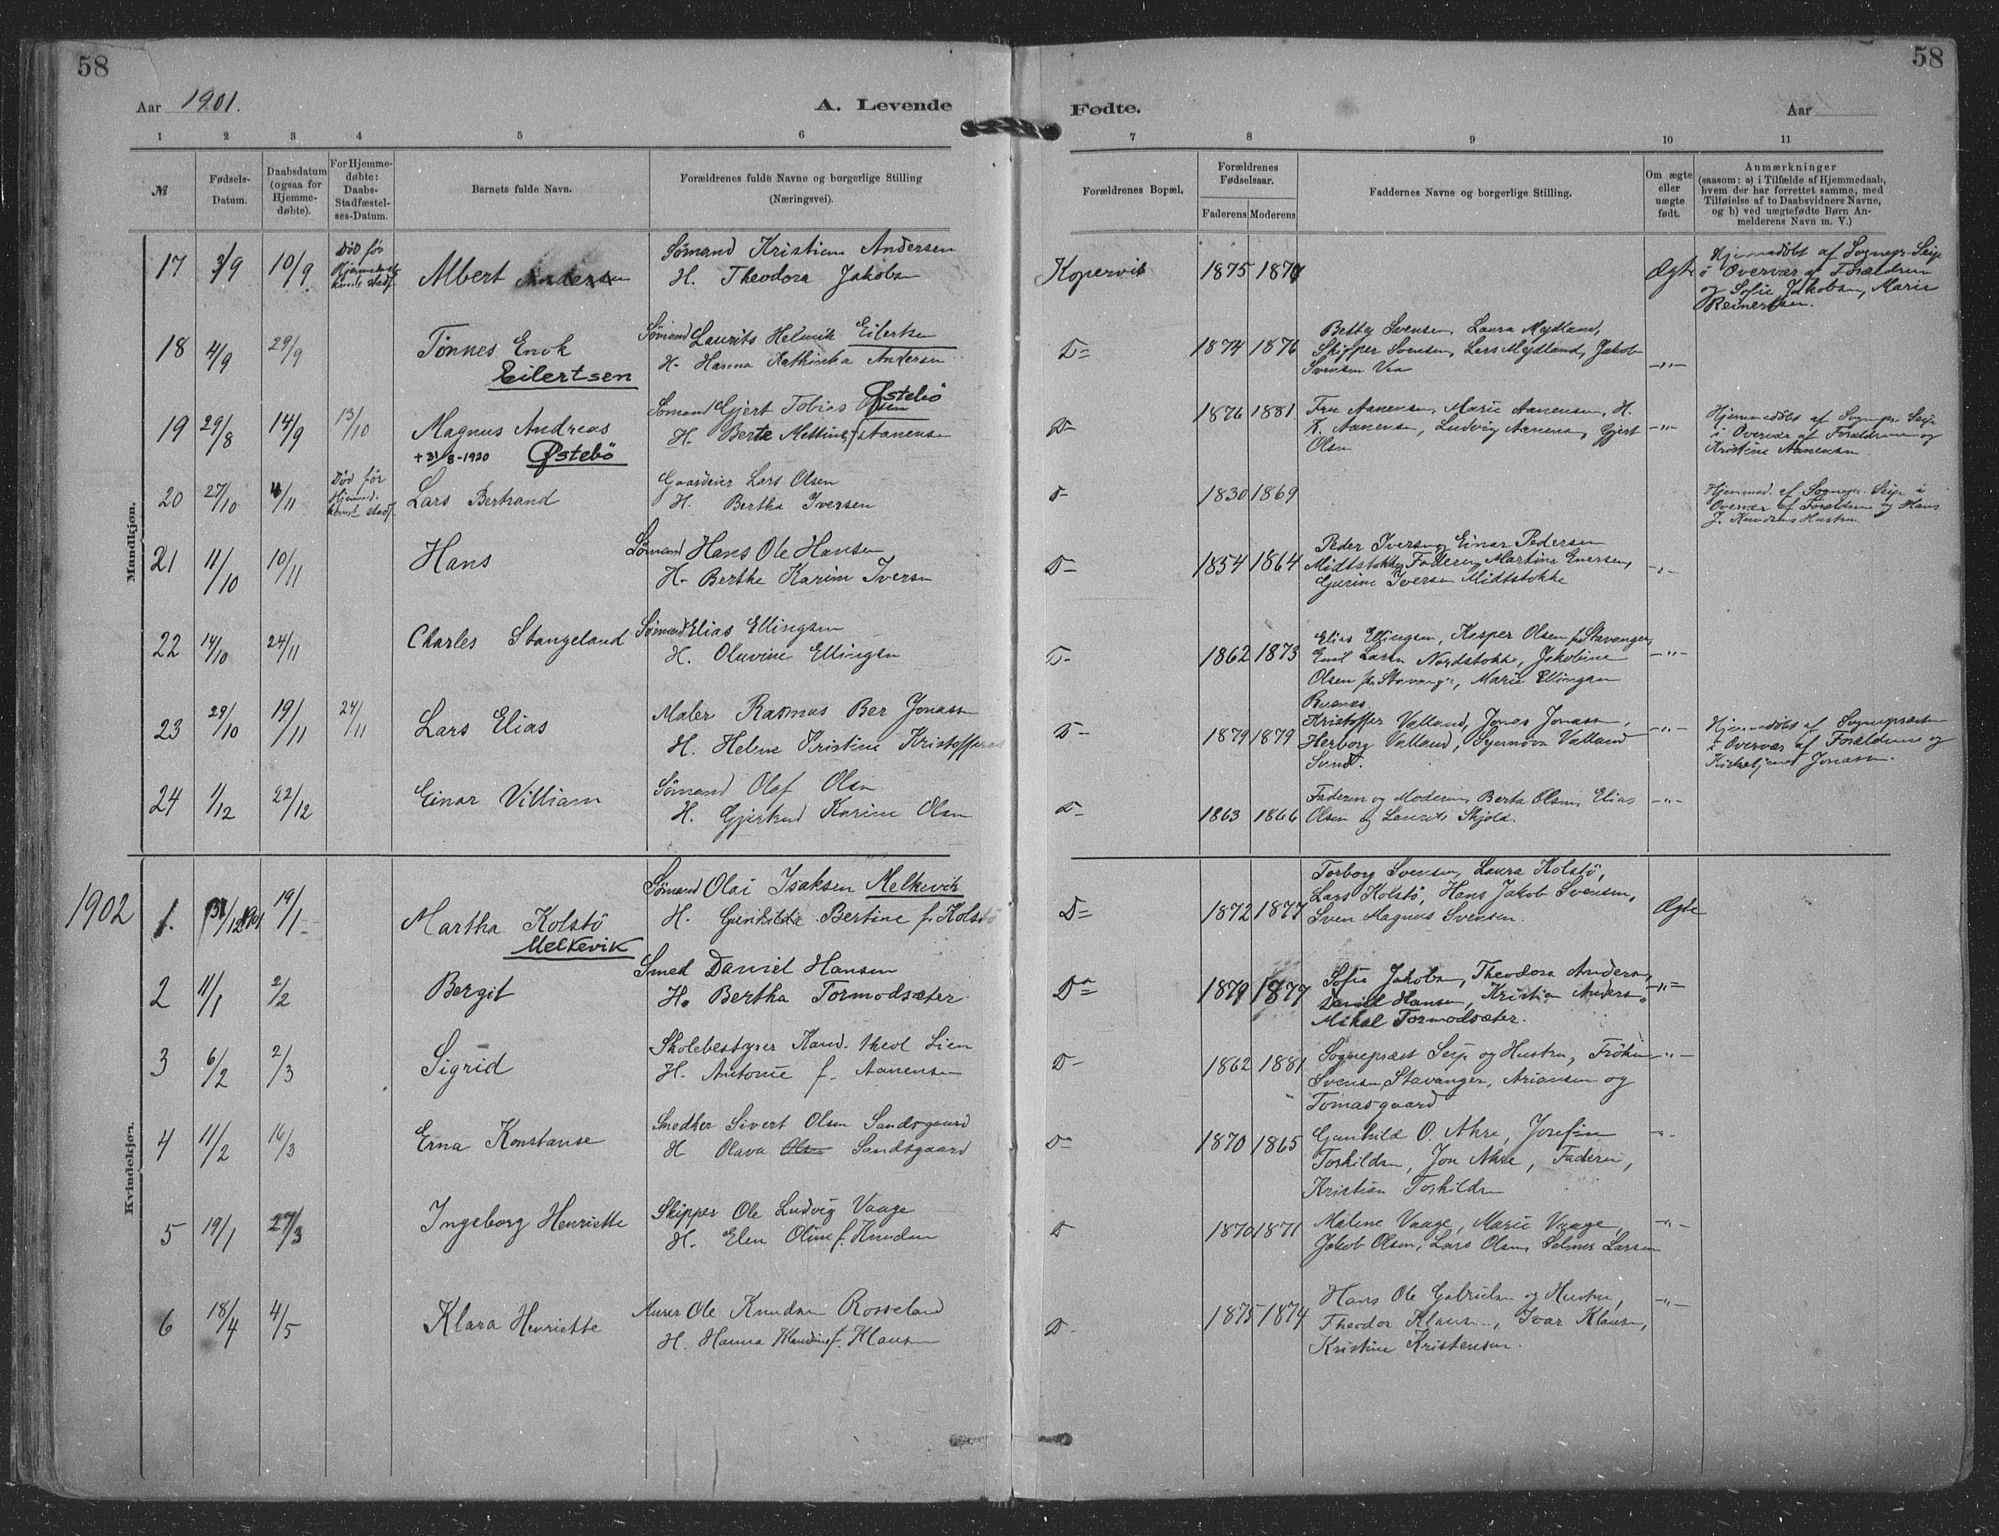 58
58
Aar 1901.
A. Levende
Fødte.
Aar
1 2 3 4 5 6 7 8 9 10 11
№
Fødsels-Datum.
Daabsdatum (ogsaa for Hjemmedøbte).
For Hjemmedøbte: Daabs-Stadfæstelses-Datum.
Barnets fulde Navn.
Forældrenes fulde Navne og borgerlige Stilling (Næringsvei).
Forældrenes Bopæl.
Forældrenes Fødselsaar.
Faderens Moderens
Faddernes Navne og borgerlige Stilling.
Om ægte eller uægte født.
Anmærkninger
(saasom: a) i Tilfælde af Hjemmedaab, hvem der har forrettet samme, med Tilføielse af to Daabsvidners Navne, og b) ved uægtefødte Børn Anmelderens Navn m. V.)
Mandkjøn.
17 3/9 10/9 Død før
Albert Andersen
Sømand Kristian Andersen
H. Theodora Jakobsen
Kopervik 1875 187 Ægte
Hjemmedøbt af Sognepr. Seip
i Overvær af Forældrene
og Sofie Jakobsen, Marie
Reinertsen.
18 4/9 29/9 Tønnes Enok
Eilertsen
Sømand Laurits Helmik Eilertsen
H. Hanna Kathinka Andersen
D= 1874 1876
Betty Svensen, Laura Mydland,
Skipper Svensen, Lars Mydland, Jakob
Svensen Vea
–"–
19 29/8 14/9 13/10 Magnus Andreas
+ 31/8-1920 Østebö
Sømand Gjert Tobias Olsen Østebö
H. Berte Mettine f Aanensen
D– 1876 1881
Fru Aanensen, Marie Aanensen, H.
K. Aanensen, Ludvig Aanensen, Gjert
Olsen
–"–
Hjemmedøbt af Sognepr. Seip
i Overvær af Forældrene og
Kristine Aanensen
20 27/10 4/11 Død før Hjemmed. kunst stadf.
Lars Bertrand
Gaardeier Lars Olsen
H. Bertha Iversen
D– 1830 1869
Hjemmed. af Sognepr. Seip i
Overvær af Forældrene og Hans
J. Knudsens Hustru.
21 11/10 10/11 Hans
Sømand Hans Ole Hansen
H– Berthe Karine Iversen
D– 1854 1864
Peder Iversen, Einar Pedersen
Midtstokke, Faderen, Martine Enersen,
Gurine Iversen Midtstokke
–"–
22 14/10 24/11 Charles Stangeland
Sømand Elias Ellingsen
H. Oluvine Ellingsen
D– 1862 1873
Elias Ellingsen, Kasper Olsen fra Stavanger,
Emil Larsen Nordstokke, Jakobine
Olsen fra Stavanger, Marie Ellingsen
–"–
23 29/10 19/11 24/11 Lars Elias
Maler Rasmus Ber Jonassen
H. Helene Kristine Kristoffersen
D– 1879 1879
Kristoffer Valland, Jonas Jonassen,
Herborg Valland, Synnöva Valland
–"–
Hjemmedøbt af Sognepræsten
i Overvær af Forældrene og
Kirketjener Jonassen.
24 1/12 22/12 Einar Villiam
Sømand Olaf Olsen
H. Gjertrud Karine Olsen
D– 1863 1866
Faderen og Moderen, Berta Olsen, Elias
Olsen og Laurits Skjold.
–"–
1902
Kvindekjøn.
1. 31/12 1901 19/1 Martha Kolstö
Melkevik
Sømand Olai Isaksen Melkevik
H. Gunhilda Bertine f. Kolstö
D= 1872 1877
Torborg Svensen, Laura Kolstö,
Lars Kolstö, Hans Jakob Svensen,
Sven Magnus Svensen.
Ægte
2 11/1 2/2 Bergit
Smed Daniel Hansen
H. Bertha Tormodsæter
Do 1879 1877
Sofie Jakobsen, Theodora Andersen,
Daniel Hansen, Kristian Andersen
Mikal Tormodsæter.
–"–
3 6/2 2/3 Sigrid
Skolebestyrer Kand. theol Lien
H. Antonie f. Aanensen
D– 1862 1881
Sognepræst Seip og Hustru, Frøken
Svensen, Stavanger, Ariansen og
Tomasgaard
–"–
4 11/2 16/3 Erna Konstanse
Snedker Sivert Olsen Sandsgaard
H Olava Olsen Sandsgaard
Do 1870 1865
Gunhild O. Akre, Josefine
Torkildsen, Jon Akre, Faderen,
Kristian Torkildsen
–"–
5 19/1 27/3 Ingeborg Henriette
Skipper Ole Ludvig Vaage
H. Elen Oline f. Knudsen
D 1870 1871
Malene Vaage, Marie Vaage,
Jakob Olsen, Lars Olsen, Selmer Larsen
–"–
6 18/4 4/5 Klara Henriette
Murer Ole Knudsen Rosseland
H. Hanna Klaudine f. Klausen
D– 1875 1874
Hans Ole Gabrielsen og Hustru,
Theodor Klausen, Ivar Klausen,
Kristine Kristensen.
–"–